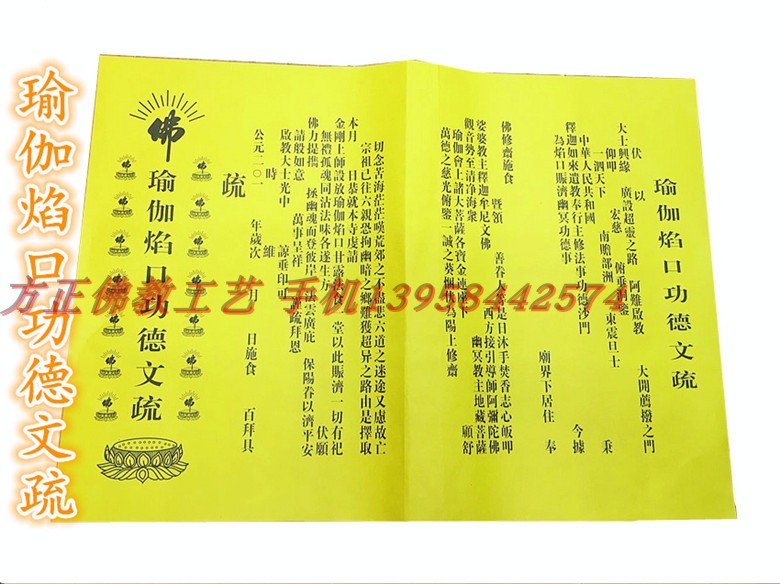 瑜伽焰口功德文疏
瑜伽焰口功德文疏
伏以
大士興緣 廣設超靈之路 阿難啟教 大開薦拨之門
仰叩 宏慈 俯垂
一泗天下 南贍部洲 東震旦士
中華人民共和國 秉
釋迦如來遺教奉行主修法事功德沙門 今據
為焰口賑濟幽冥功德事
廟界下居住 奉
佛修齋施食 暨領 善眷人等是日沐手焚香志心皈叩
娑婆教主釋迦牟尼文佛 西方接引導師阿彌陀佛
觀音勢至清淨海衆 幽冥教主地藏菩薩
瑜伽會上諸大菩薩各寶金連座下 願舒
萬德之慈光俯鑒一誠之葵 為陽上修齋
切念苦海茫茫嘆荒郊之不盡悲六道之迷途又慮故亡
宗祖已往六親恐拘幽暗之鄉難獲超昇之路由是擇取
本月 日恭就本寺虔請
金剛上師設放瑜伽焰口甘露法食一堂以此賑濟一切有祀
無禮孤魂同沾法味各遂生方 伏願
佛力提攜 拯幽魂而登彼岸 法雲廣庇 保陽眷以濟平安
請般如意 萬事呈祥 謹疏拜恩
啟教大士光中 諒垂印可
時維
疏
公元二〇一 年歲次 月 日施食 百拜具
瑜伽焰口功德文疏
佛
方正佛教工艺 手机:3933442574